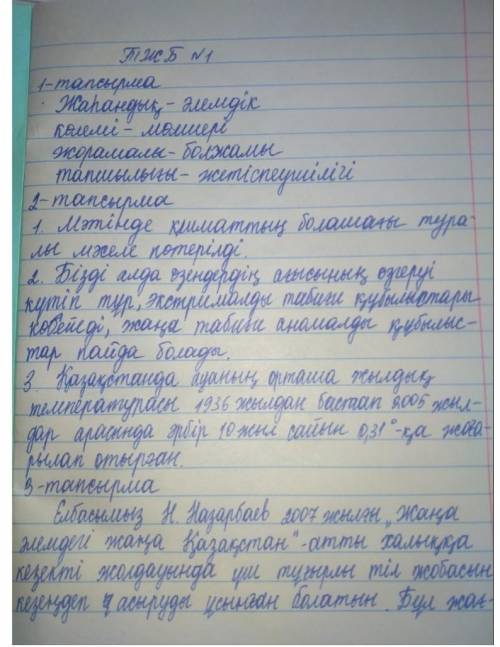 ТЖБ №1
1-тапсырма
Жаһандық - әлемдік
көлемі - мөлшері
жорамалы - болжамы
тапшылығы - жетіспеушілігі
2-тапсырма
1. Мәтінде климаттың болашағы тура-
лы мәселе көтерілді.
2. Бізді алда өзендердің ағысының өзгеруі
күтіп тұр, экстрималды табиғи құбылыстары
көбейеді, жаңа табиғи аномалды құбылыс-
тар пайда болады.
3. Қазақстанда ауаның орташа жылдық
температурасы 1936 жылдан бастап 2005 жыл-
дар арасында әрбір 10 жыл сайын 0,31°-қа жоға-
рылап отырған.
3-тапсырма
Елбасымыз Н. Назарбаев 2007 жылғы „Жаңа
әлемдегі жаңа Қазақстан"-атты халыққа
кезекті жолдауында үш тұғырлы тіл жобасын
кезеңдеп асыруды ұсынған болатын. Бұл жаң-